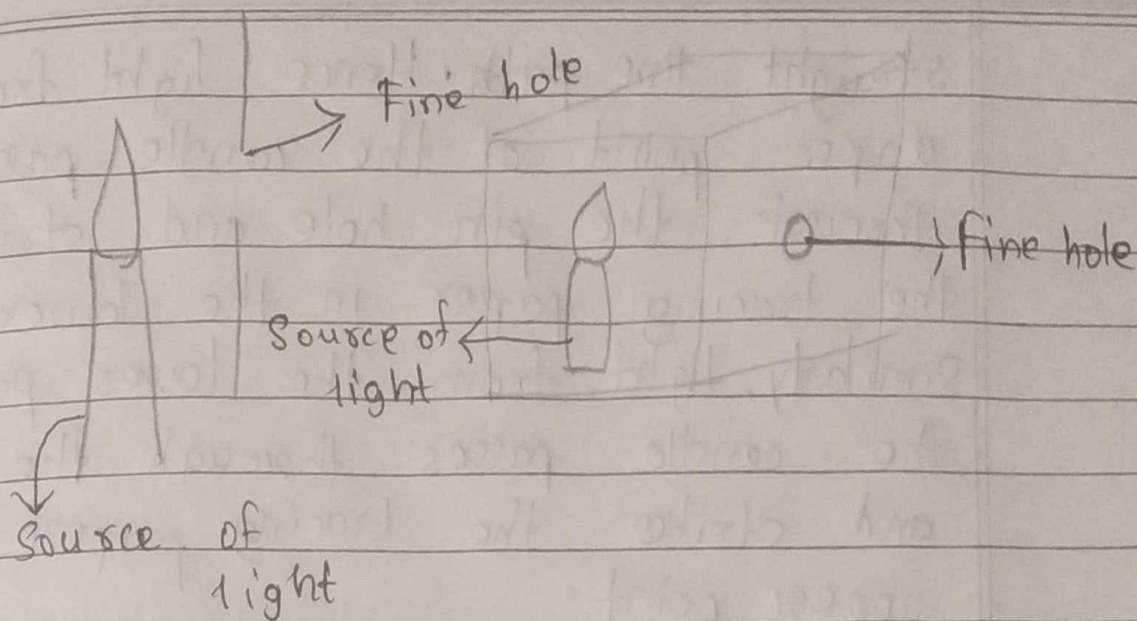 Fine hole
fine hole
Source of
light
Source of
light